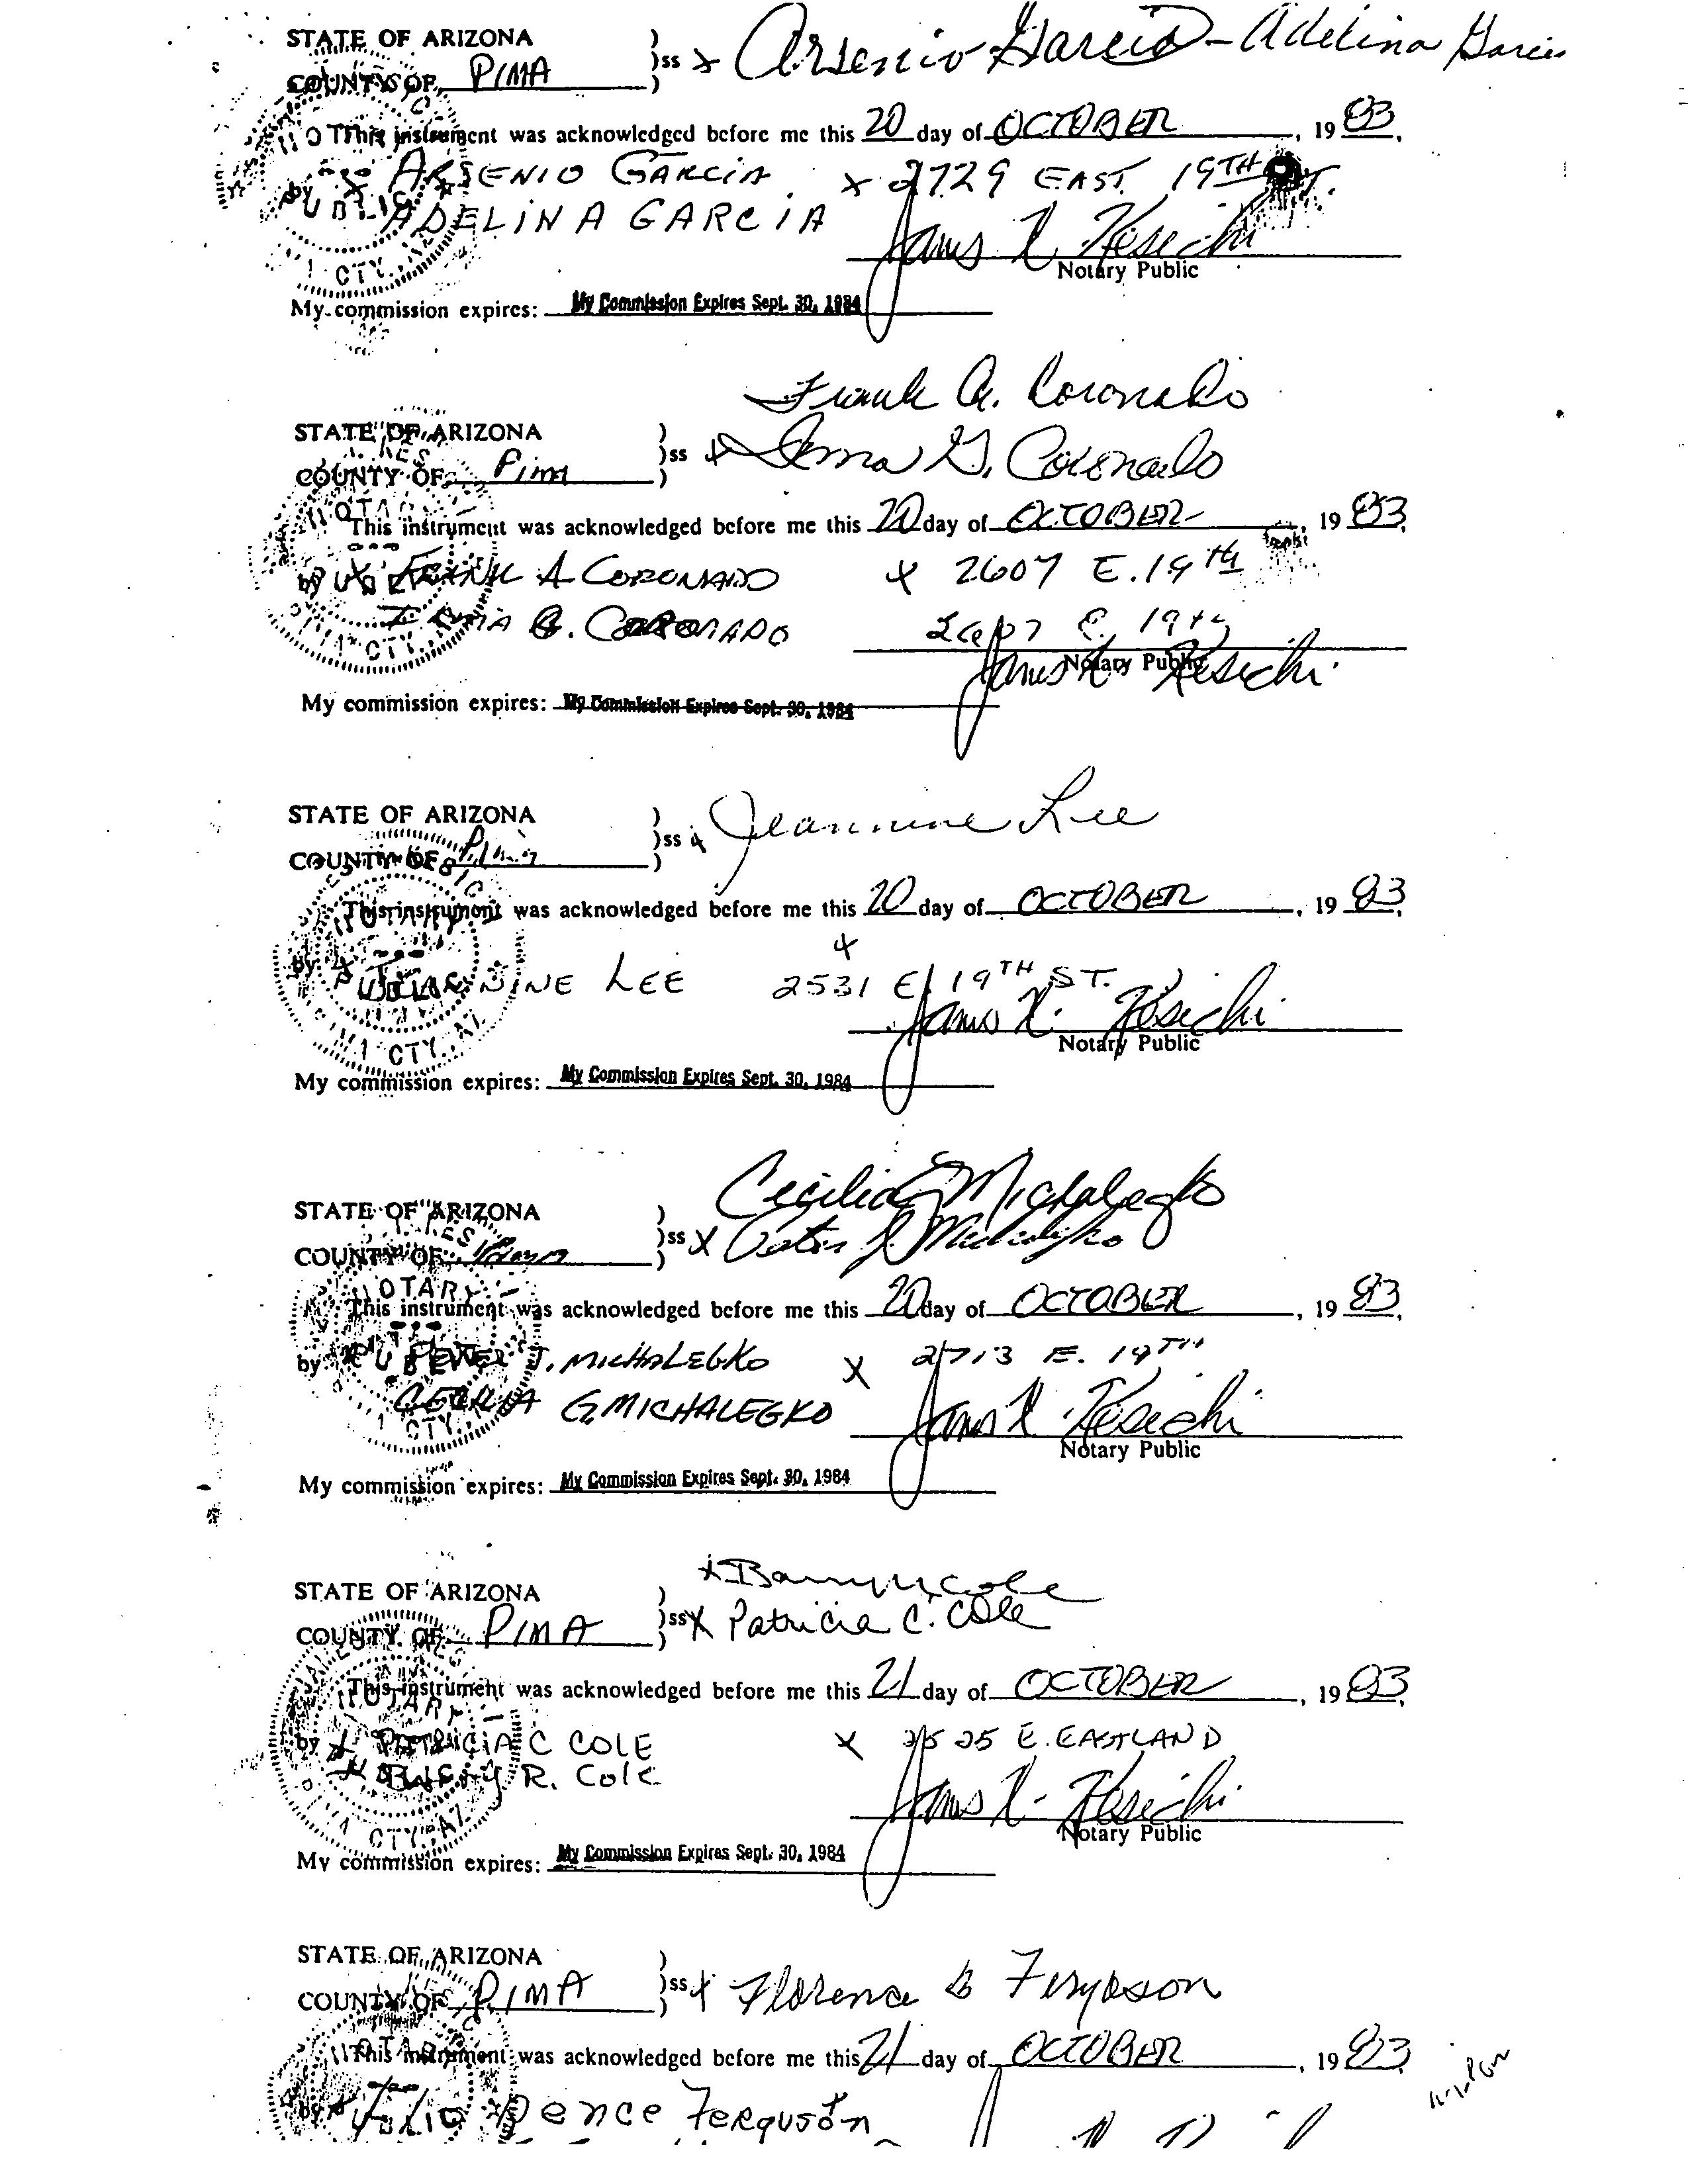 STATE OF ARIZONA )
)ss x Arsenio Garcia - Adelina Garcia
COUNTY OF PIMA )
This instrument was acknowledged before me this 20 day of OCTOBER, 19 83.
by x ARSENIO GARCIA x 2729 EAST 19TH ST.
ADELINA GARCIA
Notary Public
My commission expires: My Commission Expires Sept. 30, 1984
Frank A. Coronado
STATE OF ARIZONA )
)ss x G. Coronado
COUNTY OF Pima )
This instrument was acknowledged before me this 20 day of OCTOBER, 19 83.
by x FRANK A CORONADO x 2607 E. 19TH
G. CORONADO 2607 E. 19th
Notary Public
My commission expires: My Commission Expires Sept. 30, 1984
STATE OF ARIZONA )
)ss x Jeannine Lee
COUNTY OF Pima )
This instrument was acknowledged before me this 20 day of OCTOBER, 19 83.
x
by x JEANNINE LEE 2531 E. 19TH ST.
Notary Public
My commission expires: My Commission Expires Sept. 30, 1984
Cecilia G Michalegko
STATE OF ARIZONA )
)ss x J. Michalegko
COUNTY OF Pima )
This instrument was acknowledged before me this 20 day of OCTOBER, 19 83.
by x PETER J. MICHALEGKO x 2713 E. 19TH
CECILIA G. MICHALEGKO
Notary Public
My commission expires: My Commission Expires Sept. 30, 1984
x Barry R Cole
STATE OF ARIZONA )
)ss x Patricia C. Cole
COUNTY OF PIMA )
This instrument was acknowledged before me this 21 day of OCTOBER, 19 83.
by x PATRICIA C COLE x 2525 E. EASTLAND
x BARRY R. Cole
Notary Public
My commission expires: My Commission Expires Sept. 30, 1984
STATE OF ARIZONA )
)ss x Florence B Ferguson
COUNTY OF PIMA )
This instrument was acknowledged before me this 21 day of OCTOBER, 19 83.
by x Florence Ferguson